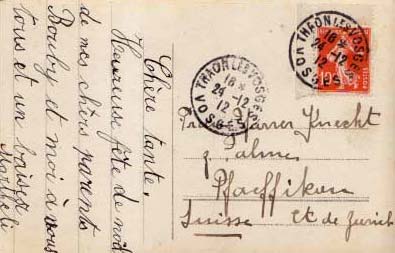 Chère tante,
Heureuse fête de noël
de mes chers parents
Bouby et moi à vous
tous et un baiser
THAON LES VOSGES
VOSGES
18
24 -12
12
THAON LES VOSGES
VOSGES
18
24 -12
12
Pfarrer Knecht
z. Palme
Pfaeffikon
Suisse Ct de Zurich